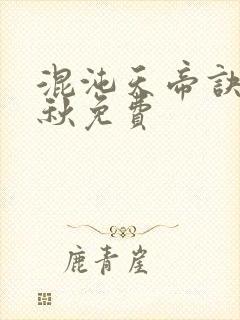 混沌天帝訣
秋免費
鹿青崖